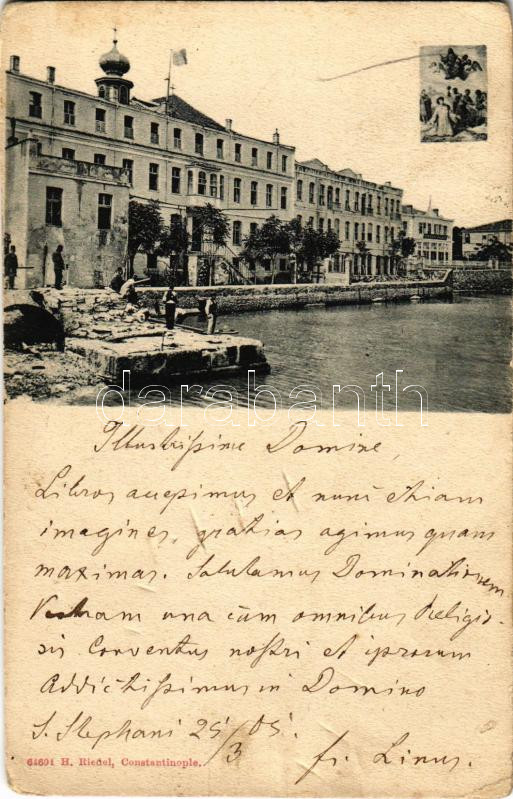 darabanth
Illustrissime Domine,
Libros accepimus et nunc etiam
imagines, gratias agimus quam
maximas. Salutamus Dominationem
Vestram una cum omnibus Religio-
sis Conventus nostri et ipsorum
Addictissimus in Domino
S. Stephani 25/3 05. fr. Linus.
64694 H. Riedel, Constantinople.